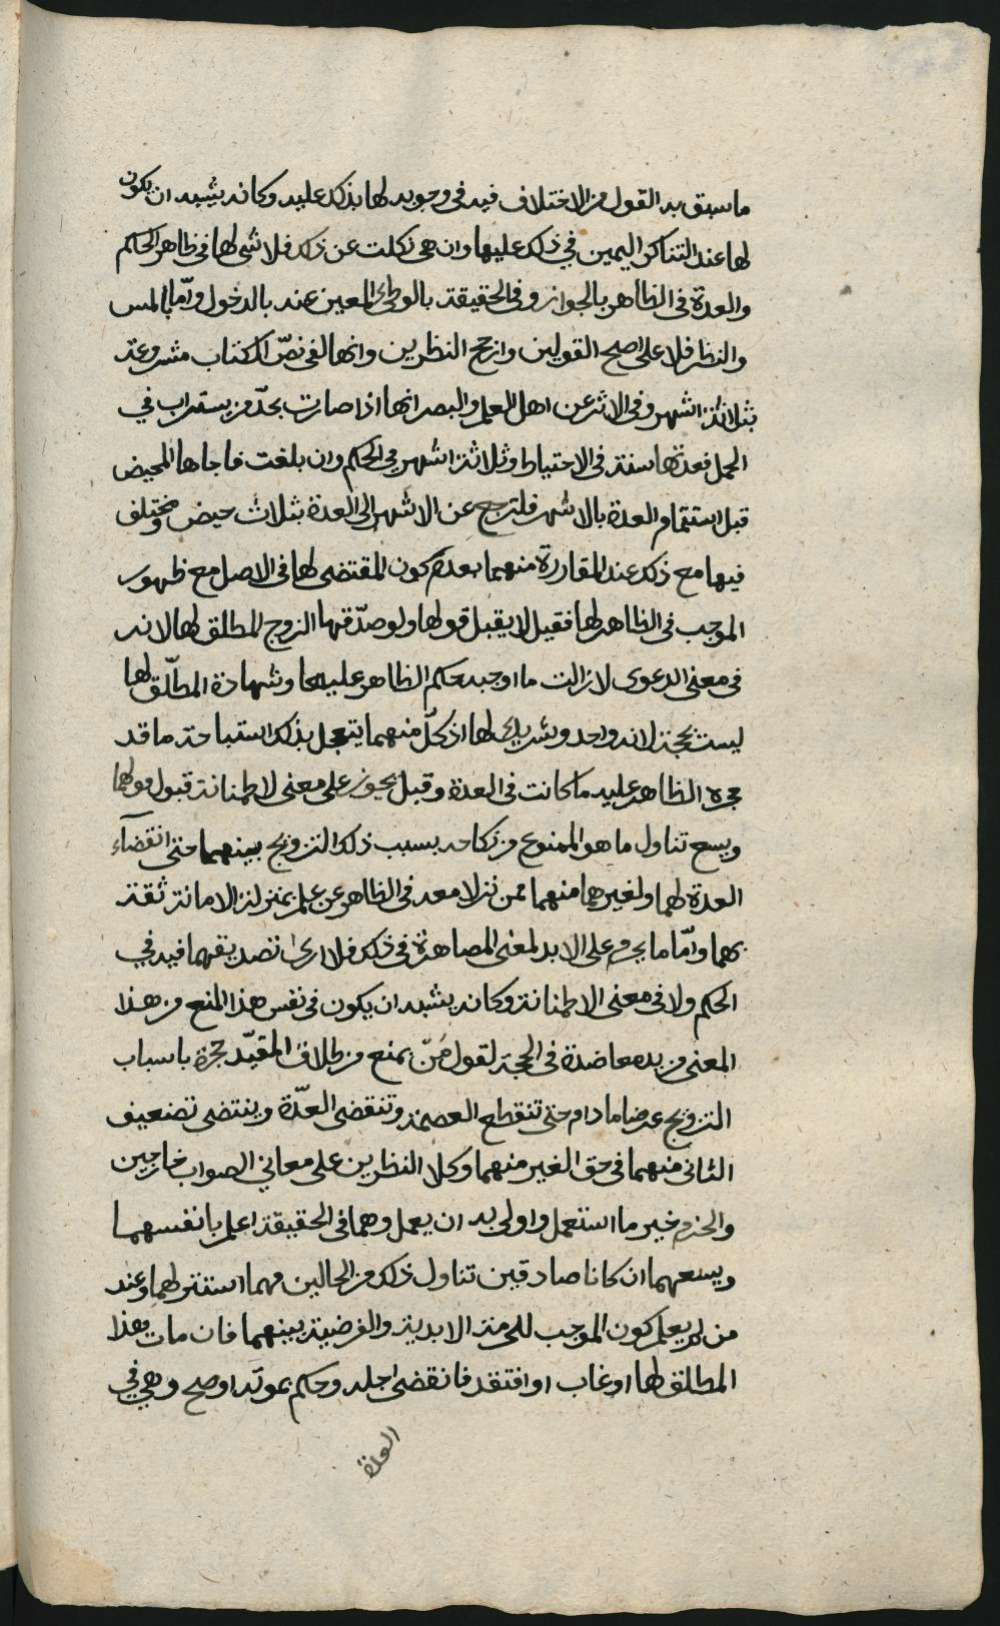 ما سبق به القول من الاختلاف فيه في وجوبه لها بذلك عليه وكانه يشبه ان يكون
لها عند التناكر اليمين في ذلك عليها وان هي نكلت عن ذلك فلا شي لها في ظاهر الحكم
والعدة في الظاهر بالجواز وفي الحقيقة بالوطئ المعين عنه بالدخول وامّا بالمس
والنظر فلا على اصح القولين وارجح النظرين وانها لفي نصّ الكتاب مشروعة
بثلاثة اشهر وفي الاثر عن اهل العلم والبصر انها اذا صارت بحدّ من يستراب في
الحمل فعدتها سنة في الاحتياط وثلاثة اشهر في الحكم وان بلغت فاجاها المحيض
قبل استتمام العدة بالاشهر فلترجع عن الاشهر الى العدة بثلاث حيض ومختلف
فيها مع ذلك عند المقاررة منهما بعدم كون المقتضى لها في الاصل مع ظهور
الموجب في الظاهر لها فقيل لا يقبل قولها ولو صدّقها الزوج المطلق لها لانه
في معنى الدعوى لازالت ما اوجبه حكم الظاهر عليها وشهادة المطلّق لها
ليست بحجة لانه واحد وشريك لها اذ كلّ منهما يتعجل بذلك استباحة ما قد
حجره الظاهر عليه ما كانت في العدة وقيل يجوز على معنى الاطمنانة قبول قولهما
ويسع تناول ما هو الممنوع من نكاحه بسبب ذلك التزويج بينهما حتى انقضآء
العدة لهما ولغيرهما منهما ممن نزلا معه في الظاهر عن علم بمنزلة الامانة ثقة
بهما وامّا ما يحرم على الابد لمعنى المصاهرة في ذلك فلا ارى تصديقهما فيه في
الحكم ولا في معنى الاطمنانة وكانه يشبه ان يكون في نفس هذا المنع من هذا
المعنى مزيد معاضدة في الحجة لقول مَنّ يمنع من طلاق المقيّد حجرة باسباب
التزويج عرضا ما دام حتى تنقطع العصمة وتنقضى العدّة وينتضى تضعيف
الثانى منهما في حق الغير منهما وكلا النظرين على معاني الصواب خارجين
والحزم خير ما استعمل واولى به ان يعمل وهما في الحقيقة اعلم بانفسهما
ويسعهما ان كانا صادقين تناول ذلك من الحالين مهما استتر لهما وعند
من لم يعلم كون الموجب للحرمة الابدية والفرضية بينهما فان مات هذا
المطلق لها او غاب او افتقد فانقضى اجله وحكم بموته او صح وهي في
العدة